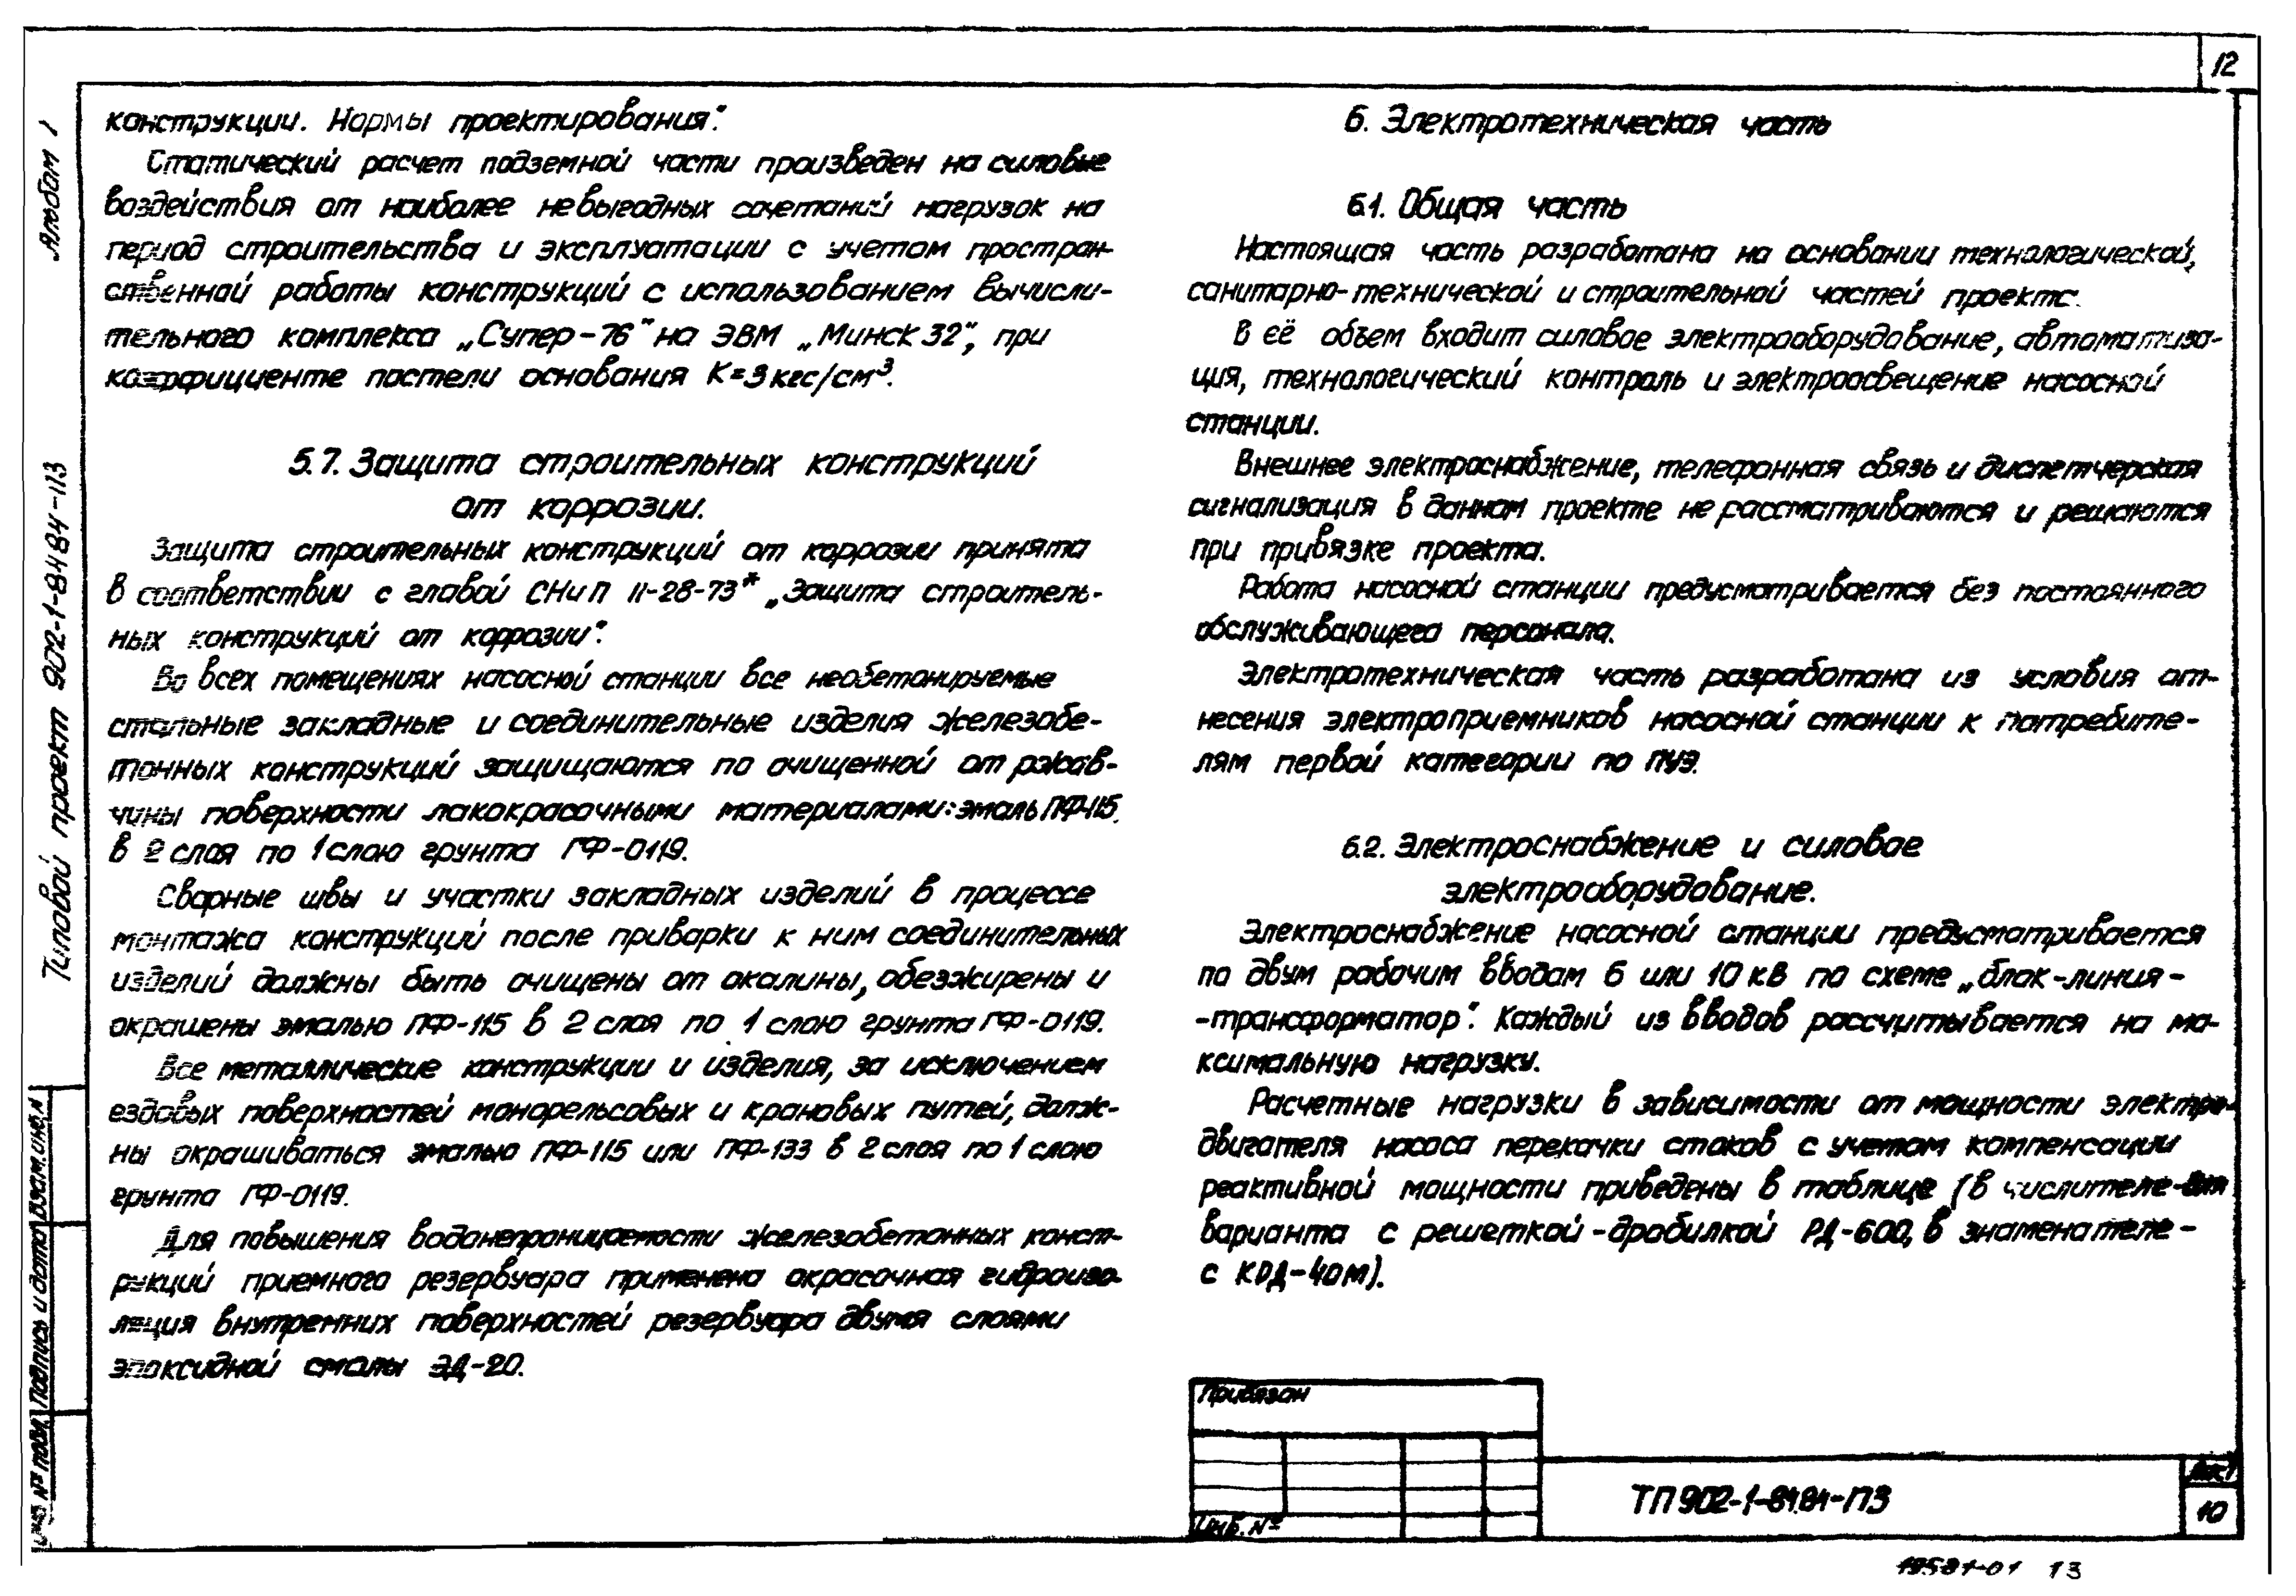 12
Альбом 1
Типовой проект 902-1-84.84-ПЗ
конструкции. Нормы проектирования".
Статический расчет подземной части произведен на силовые
воздействия от наиболее невыгодных сочетаний нагрузок на
период строительства и эксплуатации с учетом простран-
ственной работы конструкций с использованием вычисли-
тельного комплекса „Супер-76" на ЭВМ „Минск 32", при
коэффициенте постели основания К=3кгс/см³.
5.7. Защита строительных конструкций
от коррозии.
Защита строительных конструкций от коррозии принята
в соответствии с главой СНиП II-28-73* „Защита строитель-
ных конструкций от коррозии".
Во всех помещениях насосной станции все необетонируемые
стальные закладные и соединительные изделия железобе-
тонных конструкций защищаются по очищенной от ржав-
чины поверхности лакокрасочными материалами: эмаль ПФ-115
в 2 слоя по 1 слою грунта ГФ-0119.
Сварные швы и участки закладных изделий в процессе
монтажа конструкций после приварки к ним соединительных
изделий должны быть очищены от окалины, обезжирены и
окрашены эмалью ПФ-115 в 2 слоя по 1 слою грунта ГФ-0119.
Все металлические конструкции и изделия, за исключением
ездовых поверхностей монорельсовых и крановых путей, долж-
ны окрашиваться эмалью ПФ-115 или ПФ-133 в 2 слоя по 1 слою
грунта ГФ-0119.
Для повышения водонепроницаемости железобетонных конст-
рукций приемного резервуара применена окрасочная гидроизо-
ляция внутренних поверхностей резервуара двумя слоями
эпоксидной смолы ЭД-20.
6. Электротехническая часть
6.1. Общая часть
Настоящая часть разработана на основании технологической,
санитарно-технической и строительной частей проекта.
В её объем входит силовое электрооборудование, автоматиза-
ция, технологический контроль и электроосвещение насосной
станции.
Внешнее электроснабжение, телефонная связь и диспетчерская
сигнализация в данном проекте не рассматриваются и решаются
при привязке проекта.
Работа насосной станции предусматривается без постоянного
обслуживающего персонала.
Электротехническая часть разработана из условия от-
несения электроприемников насосной станции к потребите-
лям первой категории по ПУЭ.
6.2. Электроснабжение и силовое
электрооборудование.
Электроснабжение насосной станции предусматривается
по двум рабочим вводам 6 или 10 кВ по схеме „блок-линия-
-трансформатор". Каждый из вводов рассчитывается на ма-
ксимальную нагрузку.
Расчетные нагрузки в зависимости от мощности электро-
двигателя насоса перекачки стоков с учетом компенсации
реактивной мощности приведены в таблице (в числителе-для
варианта с решеткой-дробилкой РД-600, в знаменателе-
с КРД-40м).
Привязан
Инв. №
ТП 902-1-84.84-ПЗ
Лист
10
Инв № подл. Подпись и дата Взам. инв. №
13